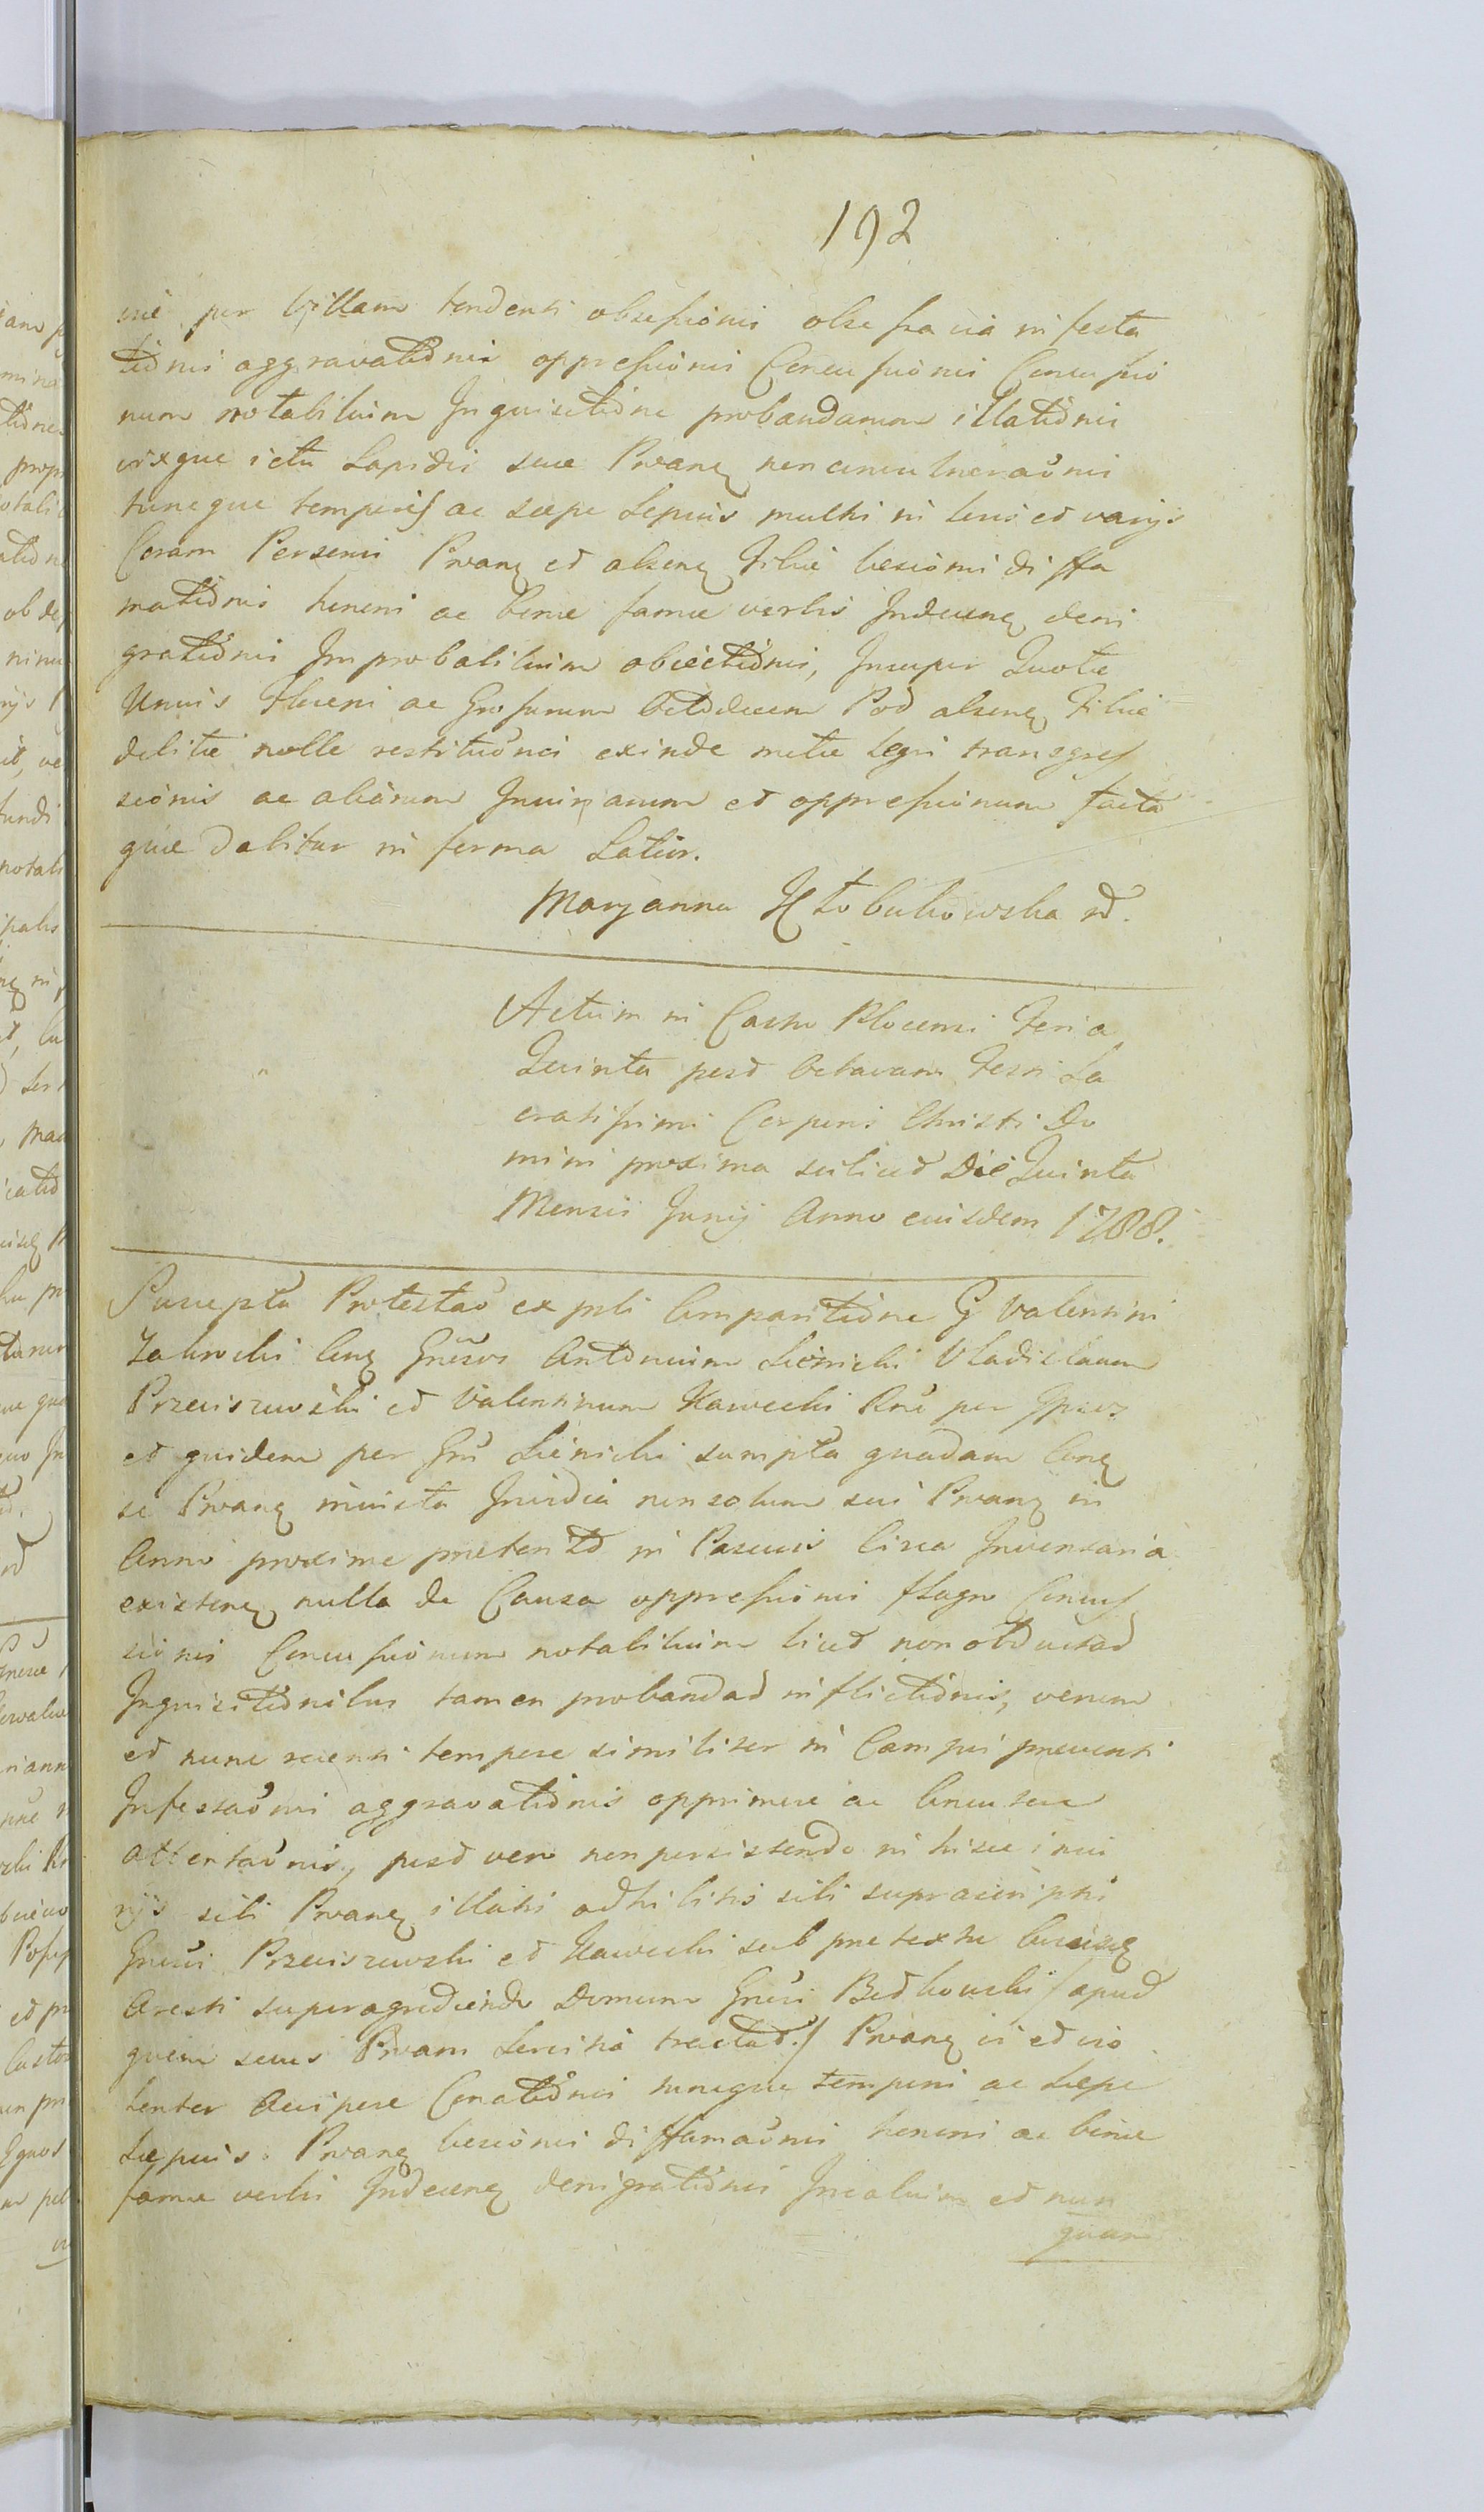 192
per Villam tendenti obsessionis via infesta
tionis aggravationis oppressionis Concussionis Concussio
num notabilium Inquisitione probandarum illationis
ictu Lapidis suae
tuncque temporis ac saepe Sepius multis in locis et varys
Coram Personis et absenq Filiae lesionis diffa
mationis honoris ac bonae famae verbis Indecenq deni
grationis Improbabilium obiectionis, Insuper Quotae
Unius Floreni ac Grossorum Octodecem absenq Filiae
debitae nolle restitutionis exinde metae legis transgres
sionis ac aliarum Iniuriarum et oppressionum facta
quae dabitur in forma Latior.
Maryanna Kłobukowska
Actum in Castro Plocensi Feria
Quinta post Octavam Festi Sa
cratissimi Corporis Christi Do
mini proxima scilicet Die Quinta
Mensis Junij Anno eiusdem 1788.
Suscepta Protestao ex pnti Comparitione G Valentini
Zaborski Conq Gnesos Antonium Sienicki Vladislaum
Przeciszewski et Valentinum Kawecki per Ipsos
et quidem per Gsu Sienicki sumpta quadam Conq
se iniusta Invidia non solum sui in
Anno proxime preterito in Pascuis Circa Inventaria
existenq nulla de Causa oppressionis flagro Concus
sionis Concussionum notabilium licet non obductad
Inquisitionibus tamen probandad inflictionis, verum
et nunc recenti tempore similiter in Campis
Infestaonis aggravationis opprimere ac Concutere
attentaonis, post vero non persistendo in hisce iniu
rys sibi illatis adhibitis sibi suprascriptis
Gnesis Przeciszewski et Kawecki sub pretextu
Aresti superagrediendo Domum Gnesi Bedkowski / apud
quem suus Servitia tractat / et vio
lenter Accipere Conationis tuncque temporis ac Saepe
Saepius lesionis diffamaonis honoris ac bonae
famae verbis Indecenq denigrationis et nun
quam